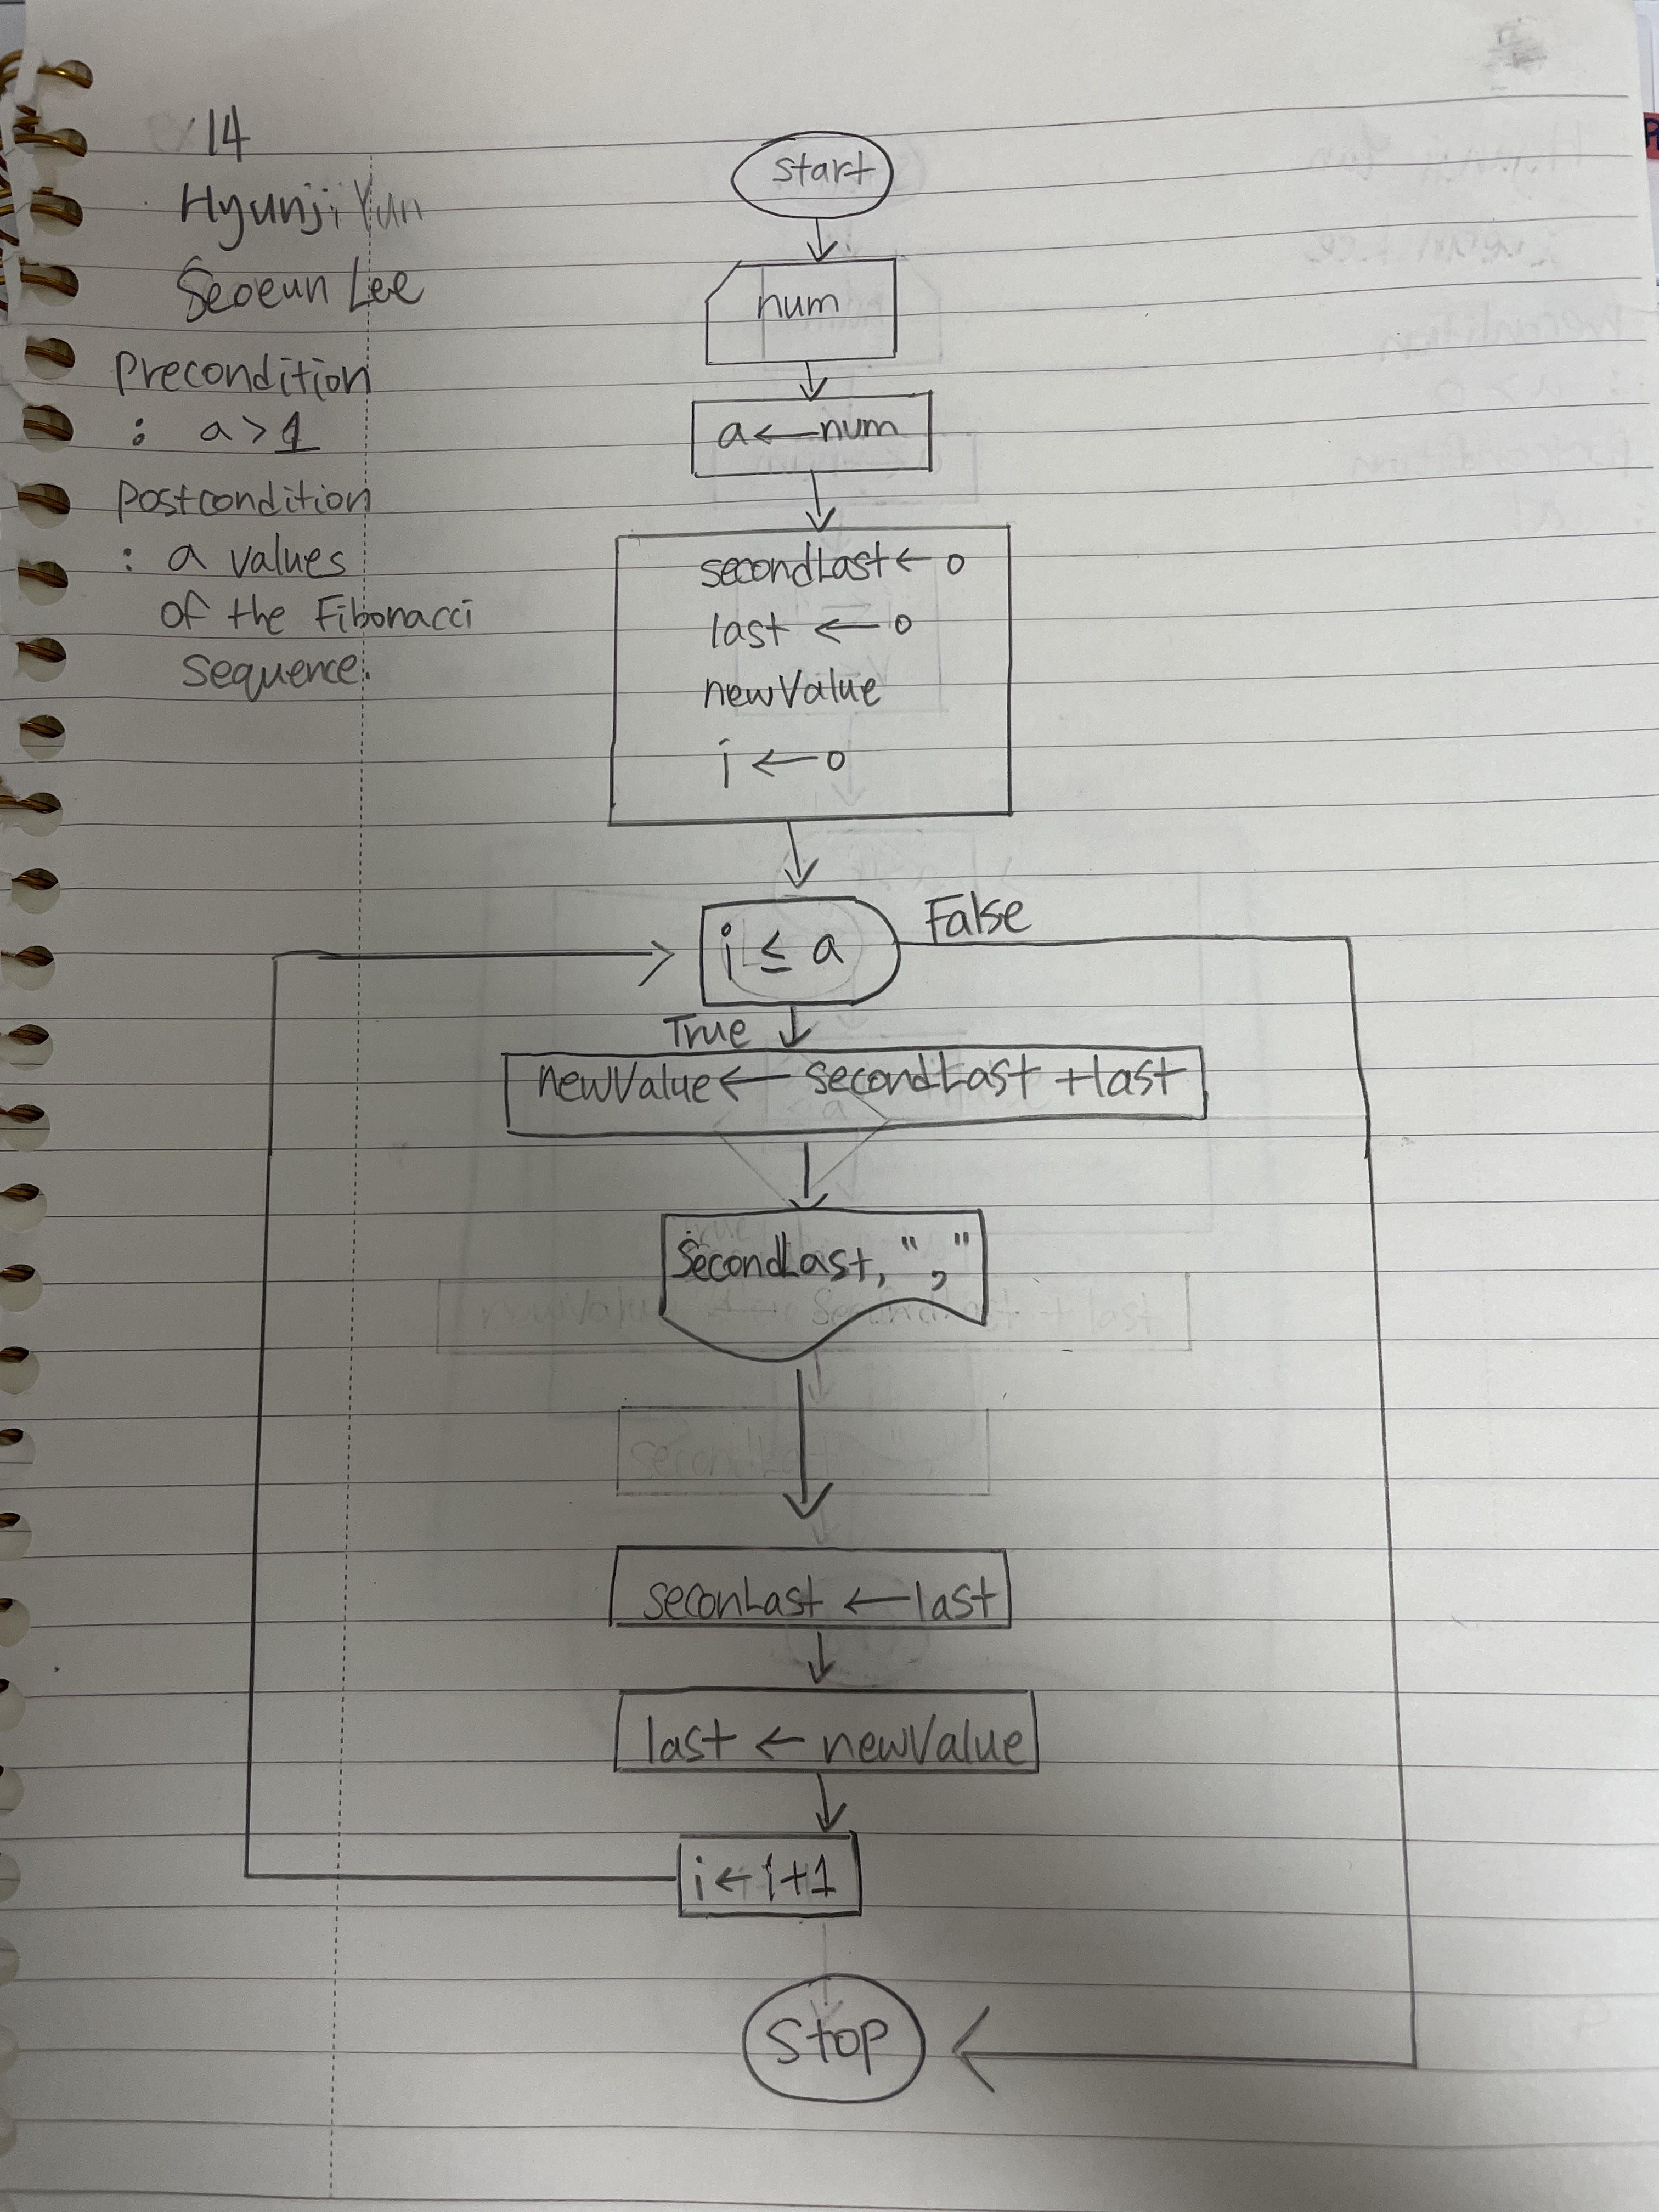 14
Hyunji Yun
Seoeun Lee
Precondition
: a > 1
Postcondition
: a values
of the Fibonacci
sequence.
start
num
a ← num
secondLast ← 0
last ← 0
newValue
i ← 0
i ≤ a
False
True
newValue ← secondLast + last
SecondLast, " , "
seconLast ← last
last ← newValue
i ← i + 1
Stop